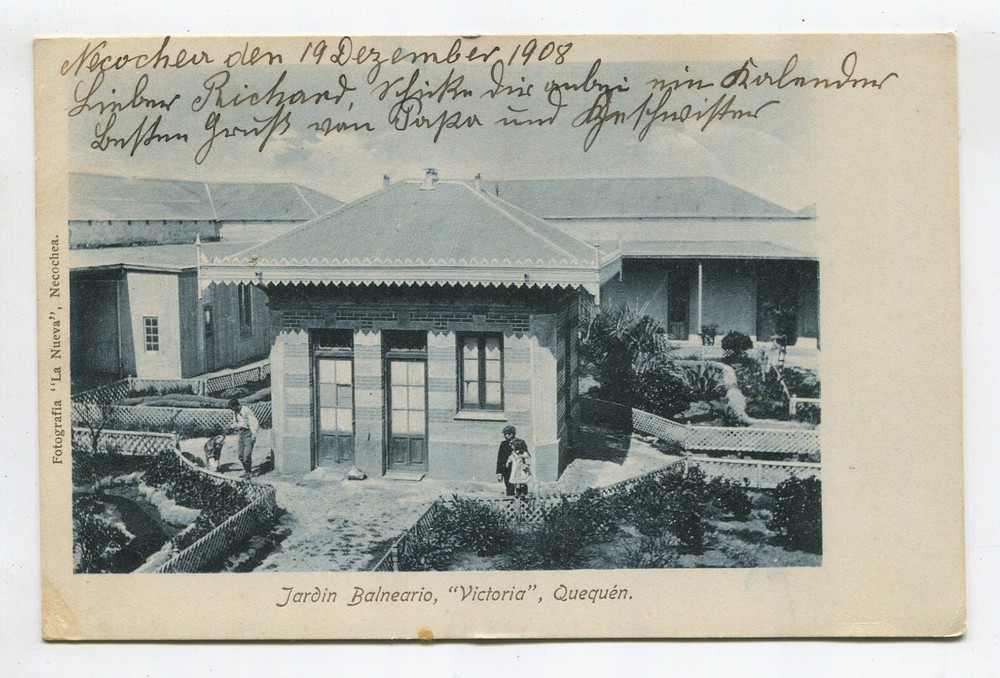 Necochea den 19 Dezember 1908
Lieber Richard, Schicke dir anbei ein Kalender
besten Gruß von Papa und Geschwister
Fotografía "La Nueva", Necochea.
Jardin Balneario, "Victoria", Quequén.